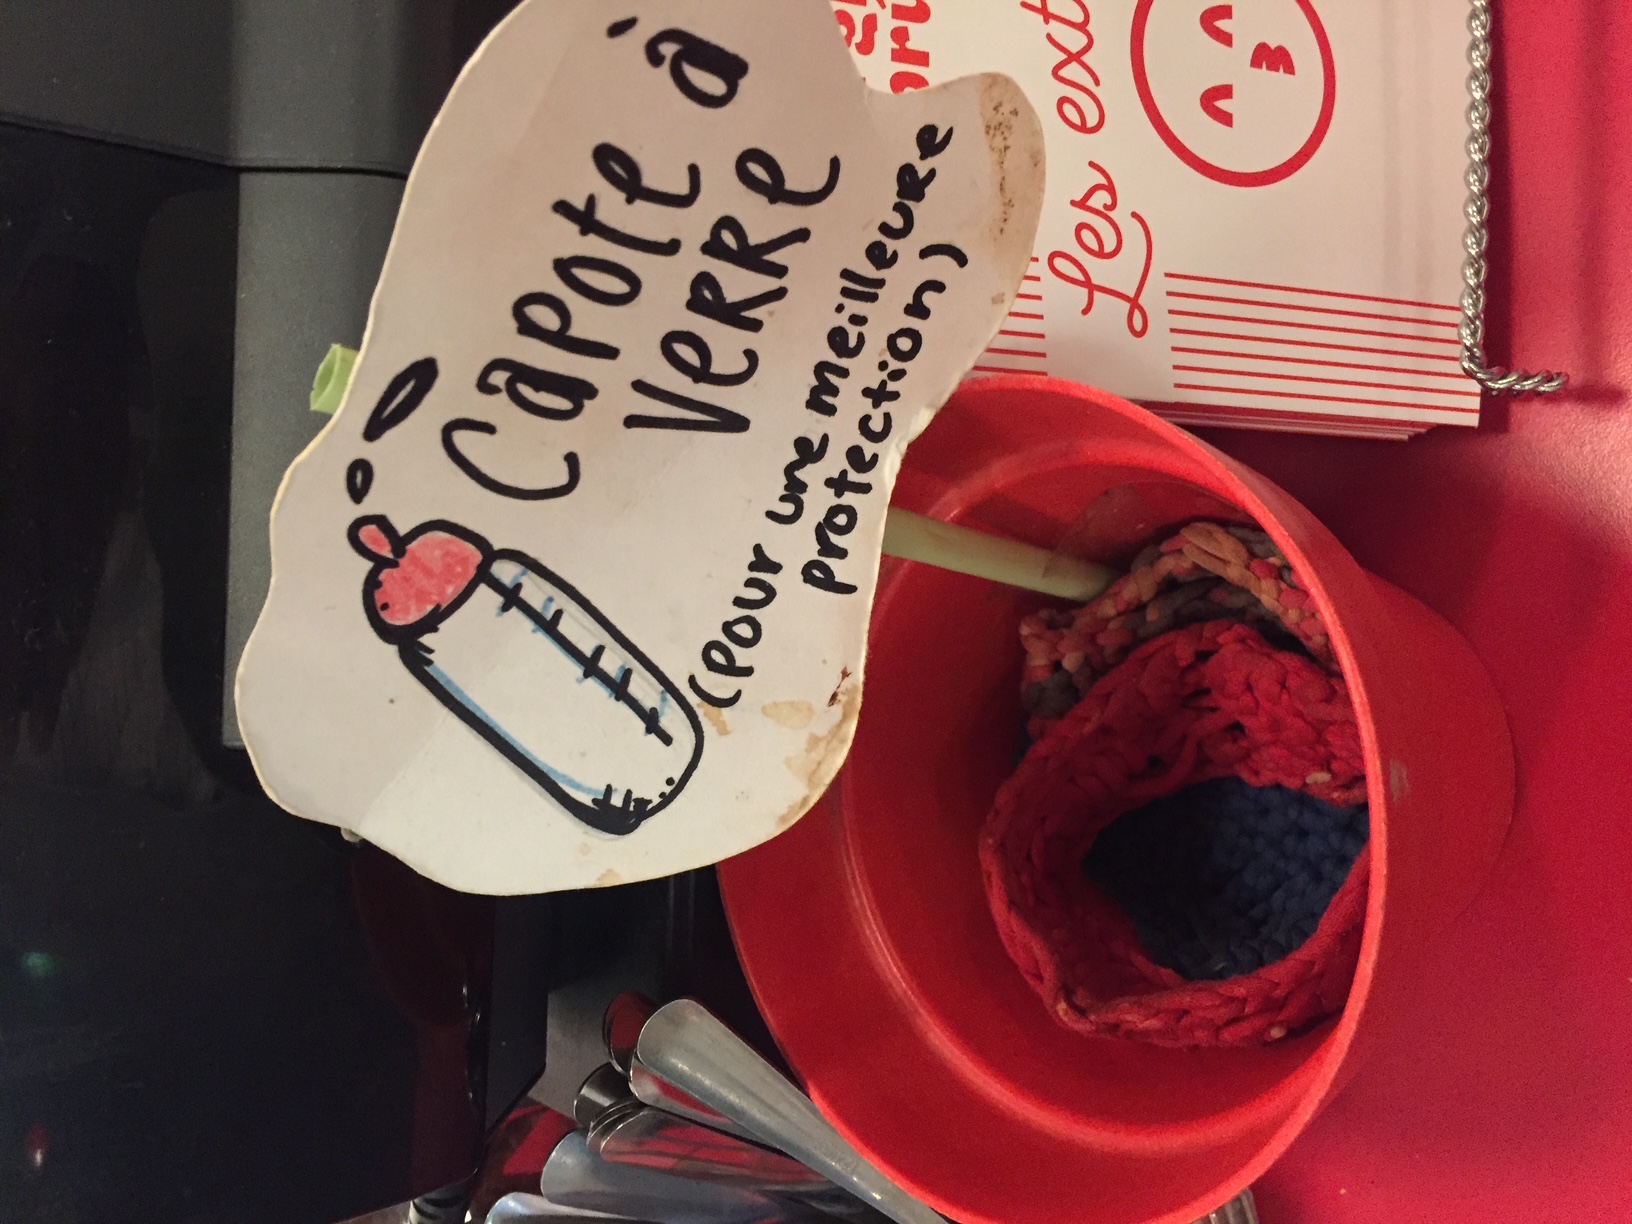 Capote à
verre
(pour une meilleure
protection)
Les